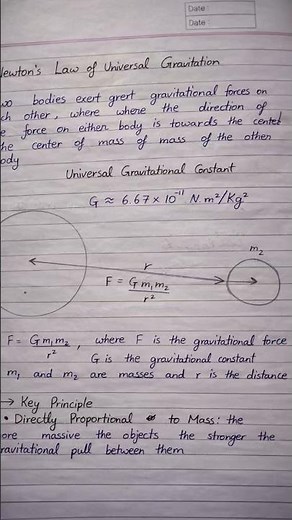 Date
Date
Newton's Law of Universal Gravitation
wo bodies exert grert gravitational forces on
ch other, where where the direction of
e force on either body is towards the center
the center of mass of mass of the other
ody
Universal Gravitational Constant
G ≈ 6.67 × 10⁻¹¹ N.m²/Kg²
m₂
r
F = G m₁ m₂ / r²
F = G m₁ m₂ / r² , where F is the gravitational force
G is the gravitational constant
m₁ and m₂ are masses and r is the distance
→ Key Principle
• Directly Proportional to Mass: the
ore massive the objects the stronger the
ravitational pull between them